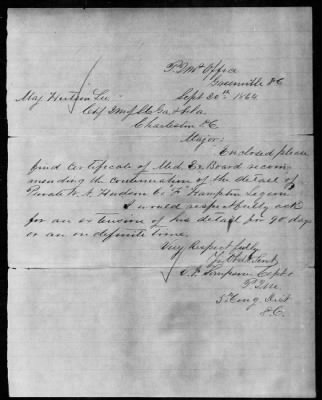 P.Q.M. Office
Greenville S.C.
Sept 20th 1864
Maj. Hutson Lee
Chf Q.M. S.C. Ga. & Fla.
Charleston S.C.
Major:
Enclosed please
find certificate of Med. Ex. Board recom-
mending the continuation of the detail of
Private W. A. Hudson Co. F Hampton Legion
I would respectfully ask
for an extension of his detail for 90 days
or an indefinite time.
Very Respectfully
Your Obdt. Servt.
Simpson Capt &
P.Q.M.
5th Cong. Dist
S.C.